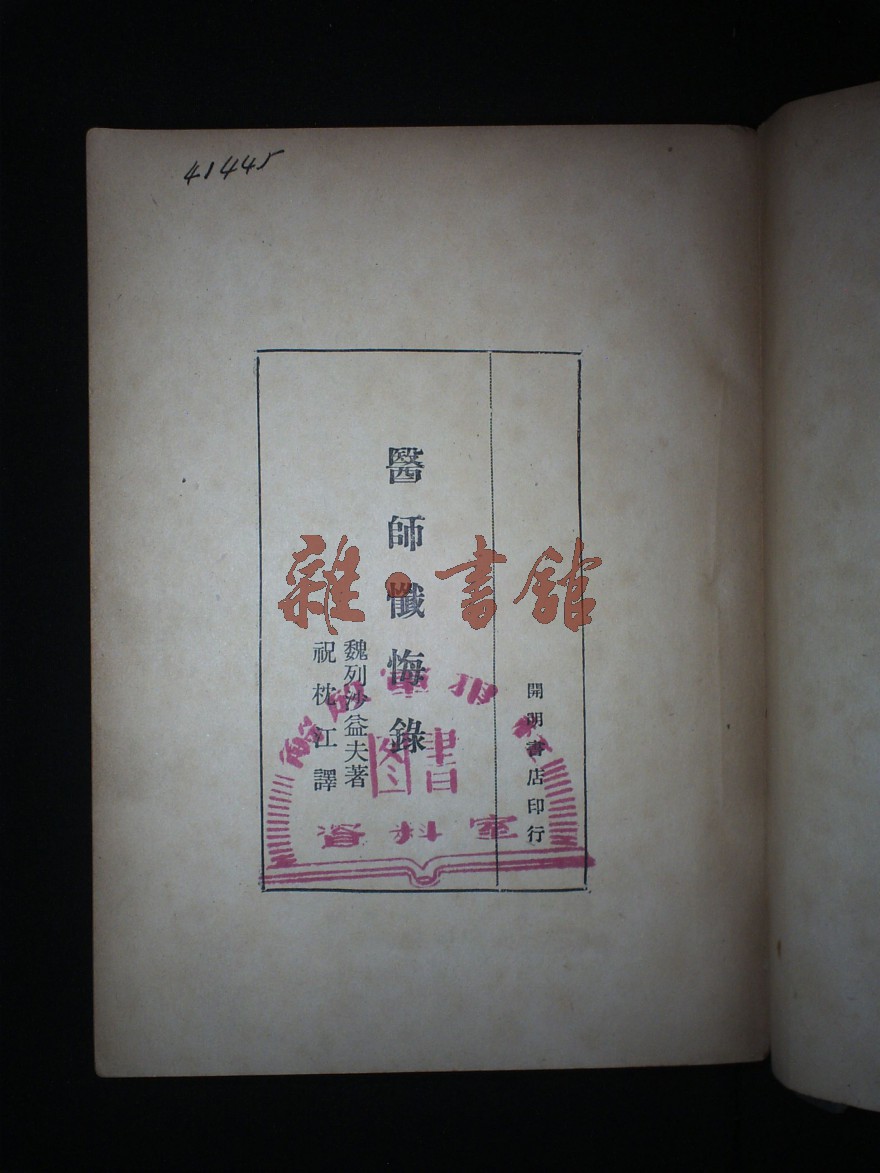 41445
開明書店印行
醫師懺悔錄
魏列沙益夫著
祝枕江譯
雜·書館
图書
資料室